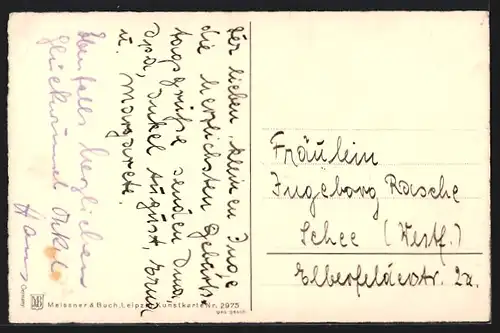 Der lieben, kleinen Inge
die herzlichsten Geburts-
tagsgrüße senden Oma,
Opa, Onkel August, Erna
u. Margarete.
Ebenfalls herzlichen
Glückwunsch Onkel
Hans
Fräulein
Ingeborg Rasche
Schee (Westf.)
Elberfelderstr. 2a.
Meissner & Buch, Leipzig Kunstkarte Nr. 2975
Germany
MB